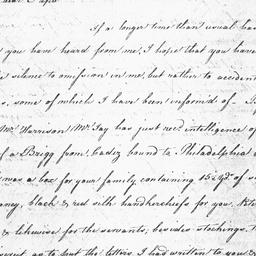 If a longer time than usual has
you have heard from me, I hope that you have
silence to omission in me, but rather to accident
some of which I have been informed of
Mr. Harrison Mr. Jay has just recd. intelligence of
of a Brigg from Cadiz bound to Philadelphia
was a box for your family containing 15 yds. of
black & red silk handkerchiefs for you,
& likewise for the servants, besides stockings. Th
went up to put the letters I had written to you &